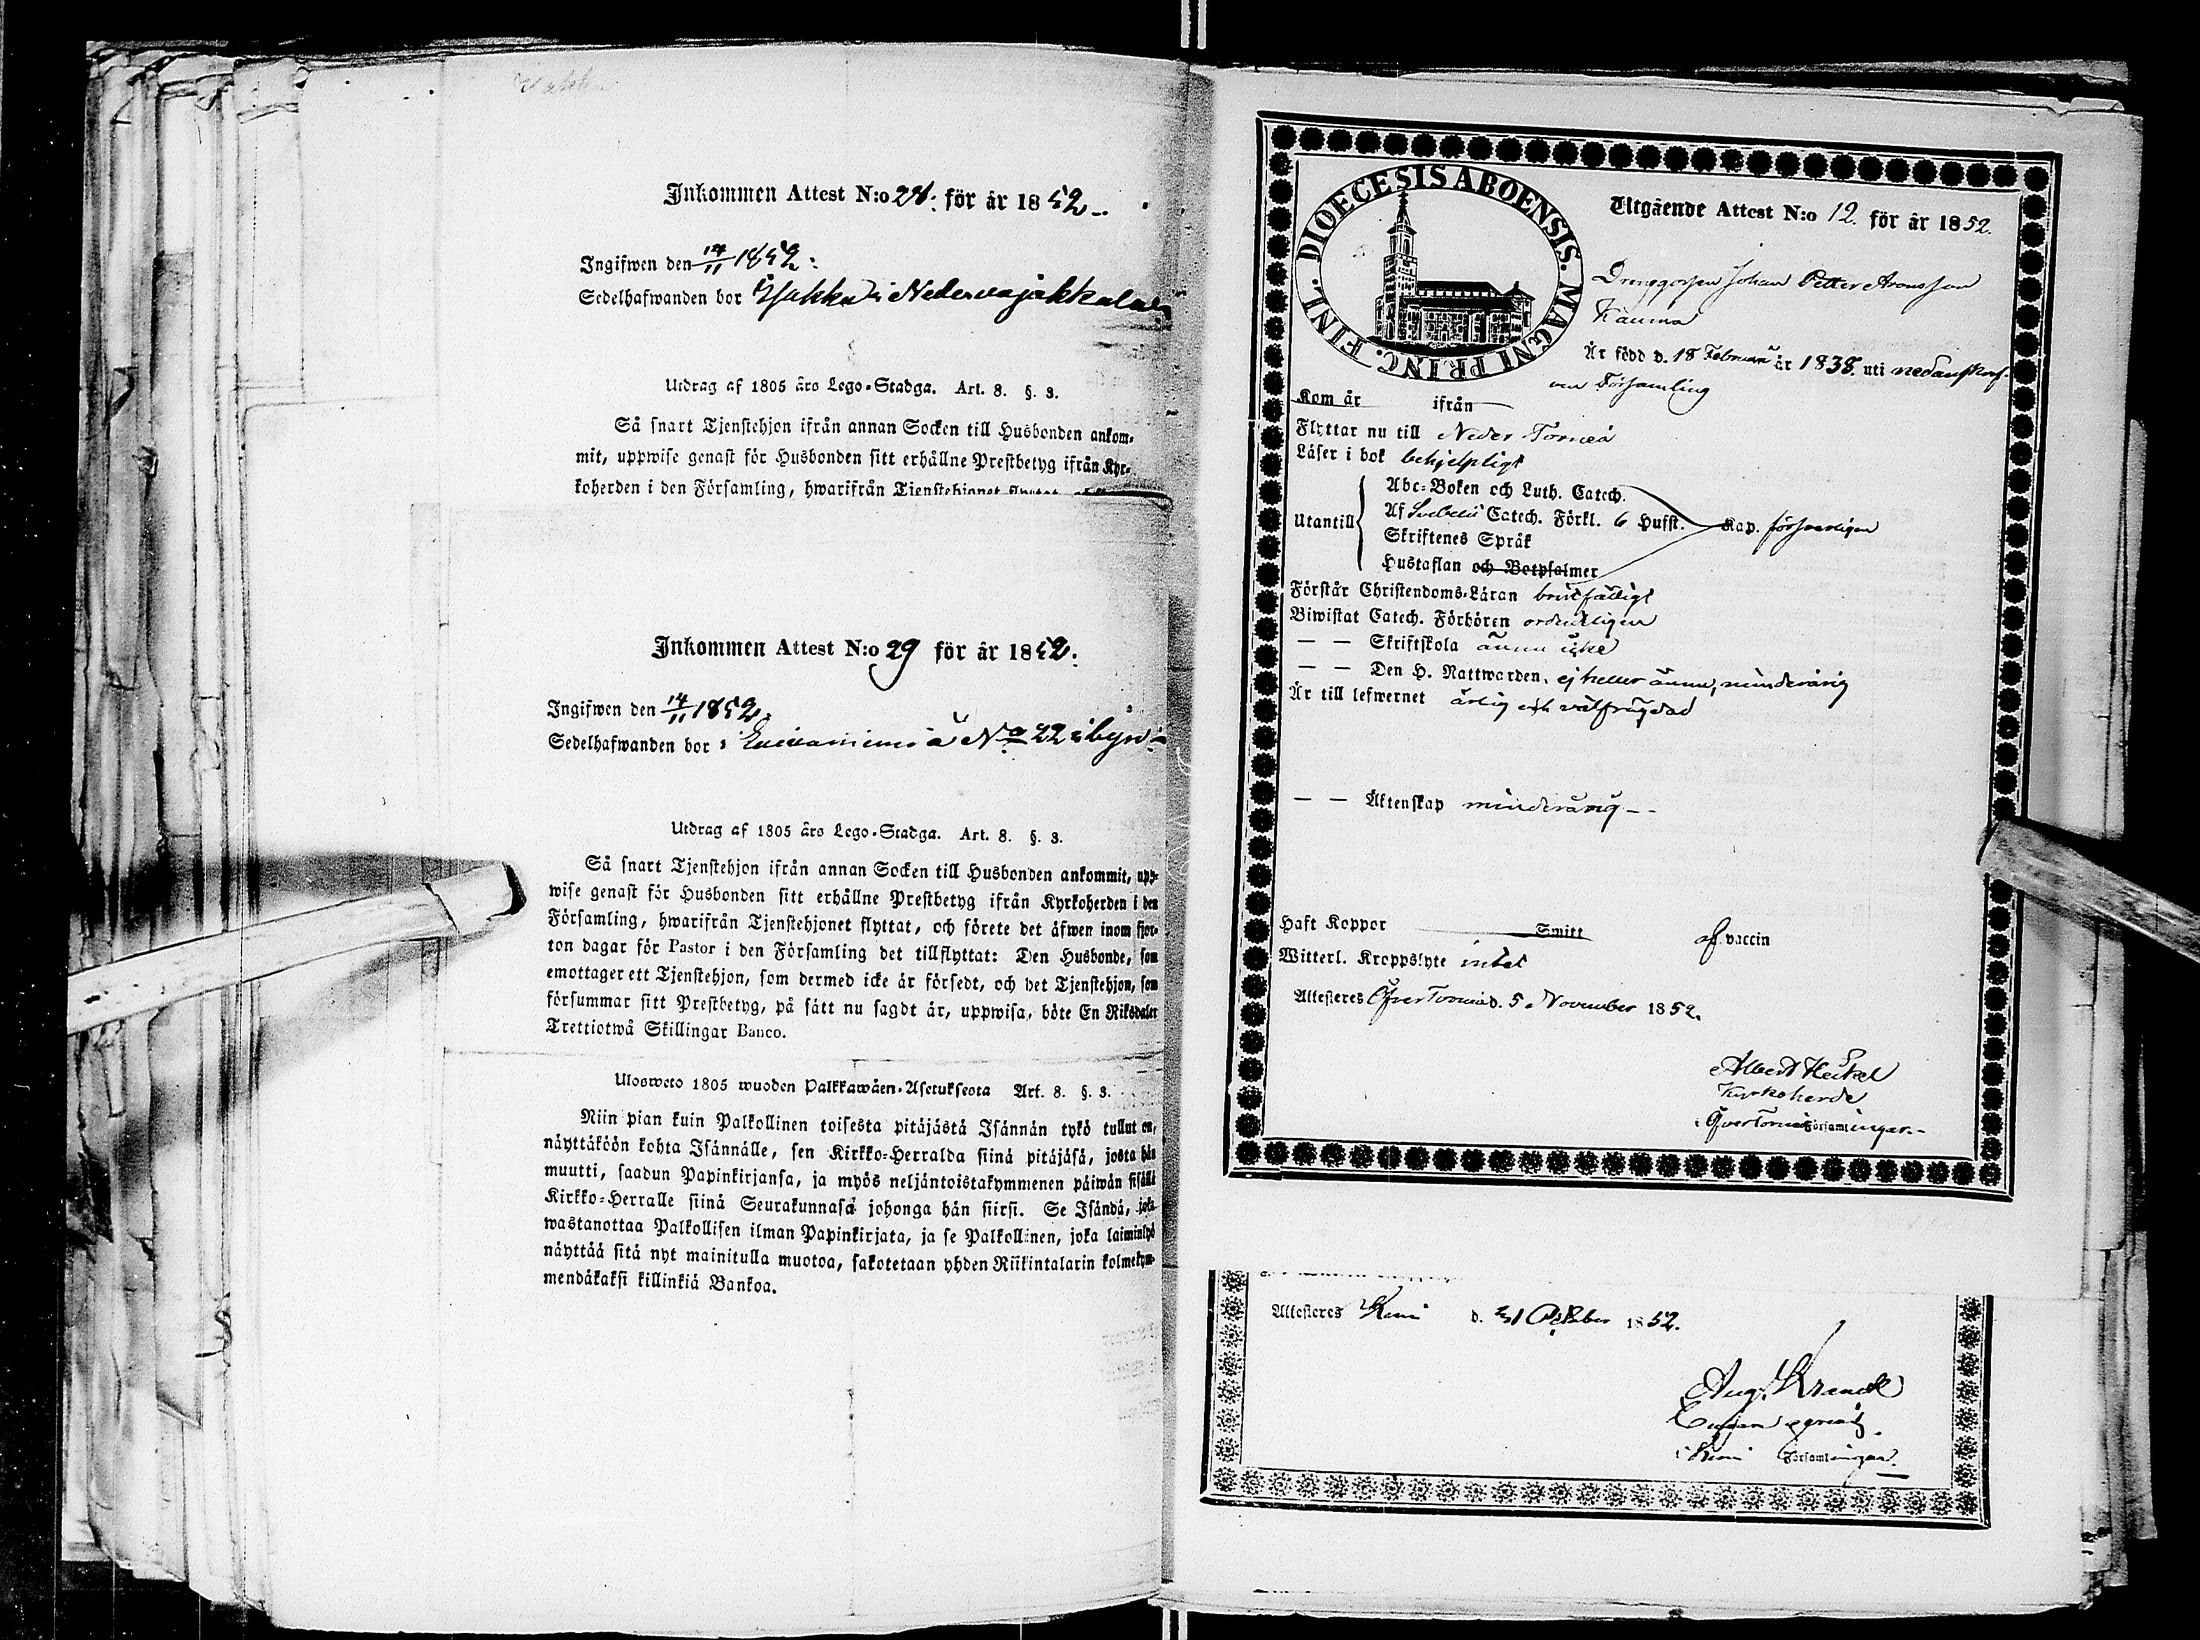 Inkommen Attest N:o 28. för år 1852.
Ingifwen den 14/11 1852.
Sedelhafwanden bor i Nedervojakkala
Utdrag af 1805 års Lego-Stadga. Art. 8. §. 3.
Så snart Tjenstehjon ifrån annan Socken till Husbonden ankom-
mit, uppwise genast för Husbonden sitt erhållne Prestbetyg ifrån Kyr-
koherden i den Församling, hwarifrån Tjenstehjonet flyttat
Inkommen Attest N:o 29 för år 1852.
Ingifwen den 14/11 1852.
Sedelhafwanden bor å No 22 i byn
Utdrag af 1805 års Lego-Stadga. Art. 8. §. 3.
Så snart Tjenstehjon ifrån annan Socken till Husbonden ankommit, upp-
wise genast för Husbonden sitt erhållne Prestbetyg ifrån Kyrkoherden i den
Församling, hwarifrån Tjenstehjonet flyttat, och förete det äfwen inom fjor-
ton dagar för Pastor i den Församling det tillflyttat: Den Husbonde, som
emottager ett Tjenstehjon, som dermed icke är försedt, och det Tjenstehjon, som
försummar sitt Prestbetyg, på sätt nu sagdt är, uppwisa, böte En Riksdaler
Trettiotwå Skillingar Banco.
Ulosweto 1805 wuoden Palkkawäen-Asetuksesta Art. 8. §. 3.
Niin pian kuin Palkollinen toisesta pitäjästä Isännän tykö tullut on,
näyttäköön kohta Isännälle, sen Kirkko-Herralda siinä pitäjäsä, josta hän
muutti, saadun Papinkirjansa, ja myös neljäntoistakymmenen päiwän sisällä
Kirkko-Herralle siinä Seurakunnasa johonga hän siirsi. Se Isändä, joka
wastanottaa Palkollisen ilman Papinkirjata, ja se Palkollinen, joka laiminlyö
näyttää sitä nyt mainitulla muotoa, sakotetaan yhden Riikintalarin kolmekym-
mendäkaksi killinkiä Bankoa.
DIOECESIS ABOENSIS. MAGNI PRINC. FINL.
Utgående Attest N:o 12. för år 1852.
Drenggossen Johan Petter Aronsson
Kauma
Är född d. 18 Februari år 1838. uti nedanskref-
ven Församling
Kom år ifrån
Flyttar nu till Neder Torneå
Läser i bok behjelpligt
Utantill
Abc-Boken och Luth. Catech.
Af Svebelii Catech. Förkl. 6 Hufst. Kap. försvarligen
Skriftenes Språk
Hustaflan och Botpsalmer
Förstår Christendoms-Läran bristfälligt
Biwistat Catech. Förhören ordentligen
— — Skriftskola ännu icke
— — Den H. Nattwarden, ej heller ännu, minderårig
Är till lefwernet ärlig och välfrägdad
— — Äktenskap minderårig - -
Haft Koppor Smitt af vaccin
Witterl. Kroppslyte intet
Attesteres Öfver Torneå d. 5 November 1852.
Albert Heikel
Kyrkoherde
i Öfver Torneå Församlingar.-
Attesteres Kemi d. 31 October 1852.
Aug.
i Kemi Församlingar.